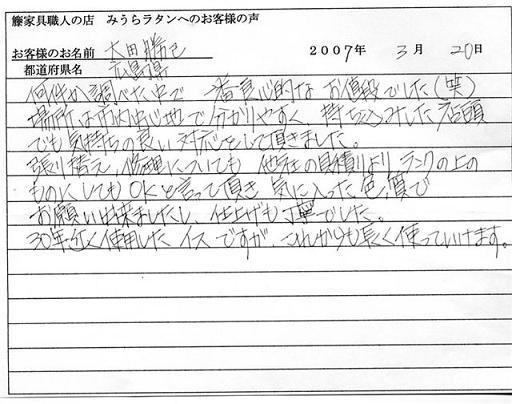 籐家具職人の店　みうらラタンへのお客様の声
お客様のお名前　太田勝己　2007年　3月　20日
都道府県名　広島県
何件か調べた中で　一番良心的な　お値段でした（笑）
場所は市内中心地で分かりやすく、持ち込みした店頭
でも気持ちの良い対応をして頂きました。
張り替え、修理についても　他社の見積りより　ランクの上の
ものにしてもOKと言って頂き　気に入った色、質で
お願い出来ましたし、仕上げも丁寧でした。
30年近く使用した　イスですが、これからも長く使っていけます。